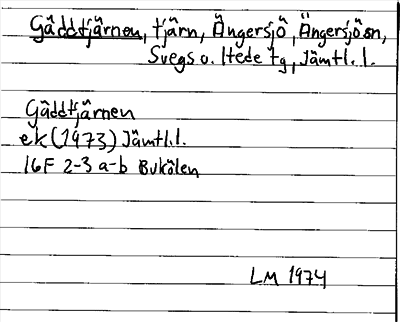 Gäddtjärnen, tjärn, Ängersjö, Ängersjösn,
Svegs o. Itede tg, Jämtl.l.
Gäddtjärnen
ek (1973) Jämtl.l.
16F 2-3 a-b Bukölen
LM 1974